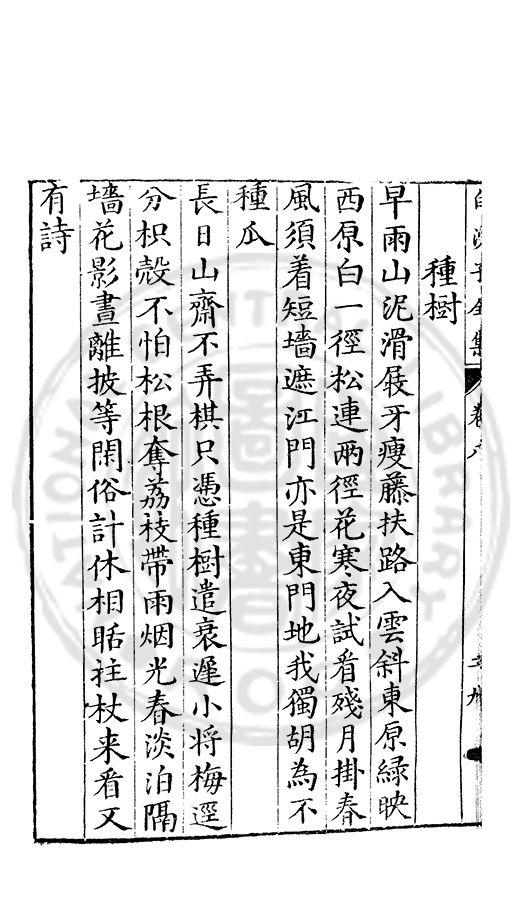 白沙子全集
卷六
種樹
早雨山泥滑屐牙瘦藤扶路入雲斜東原綠映
西原白一徑松連兩徑花寒夜試看殘月掛春
風須着短墻遮江門亦是東門地我獨胡為不
種瓜
長日山齋不弄棋只憑種樹遣衰遲小將梅逕
分枳殼不怕松根奪荔枝帶雨烟光春淡泊隔
墻花影晝離披等閑俗計休相聒拄杖来看又
有詩